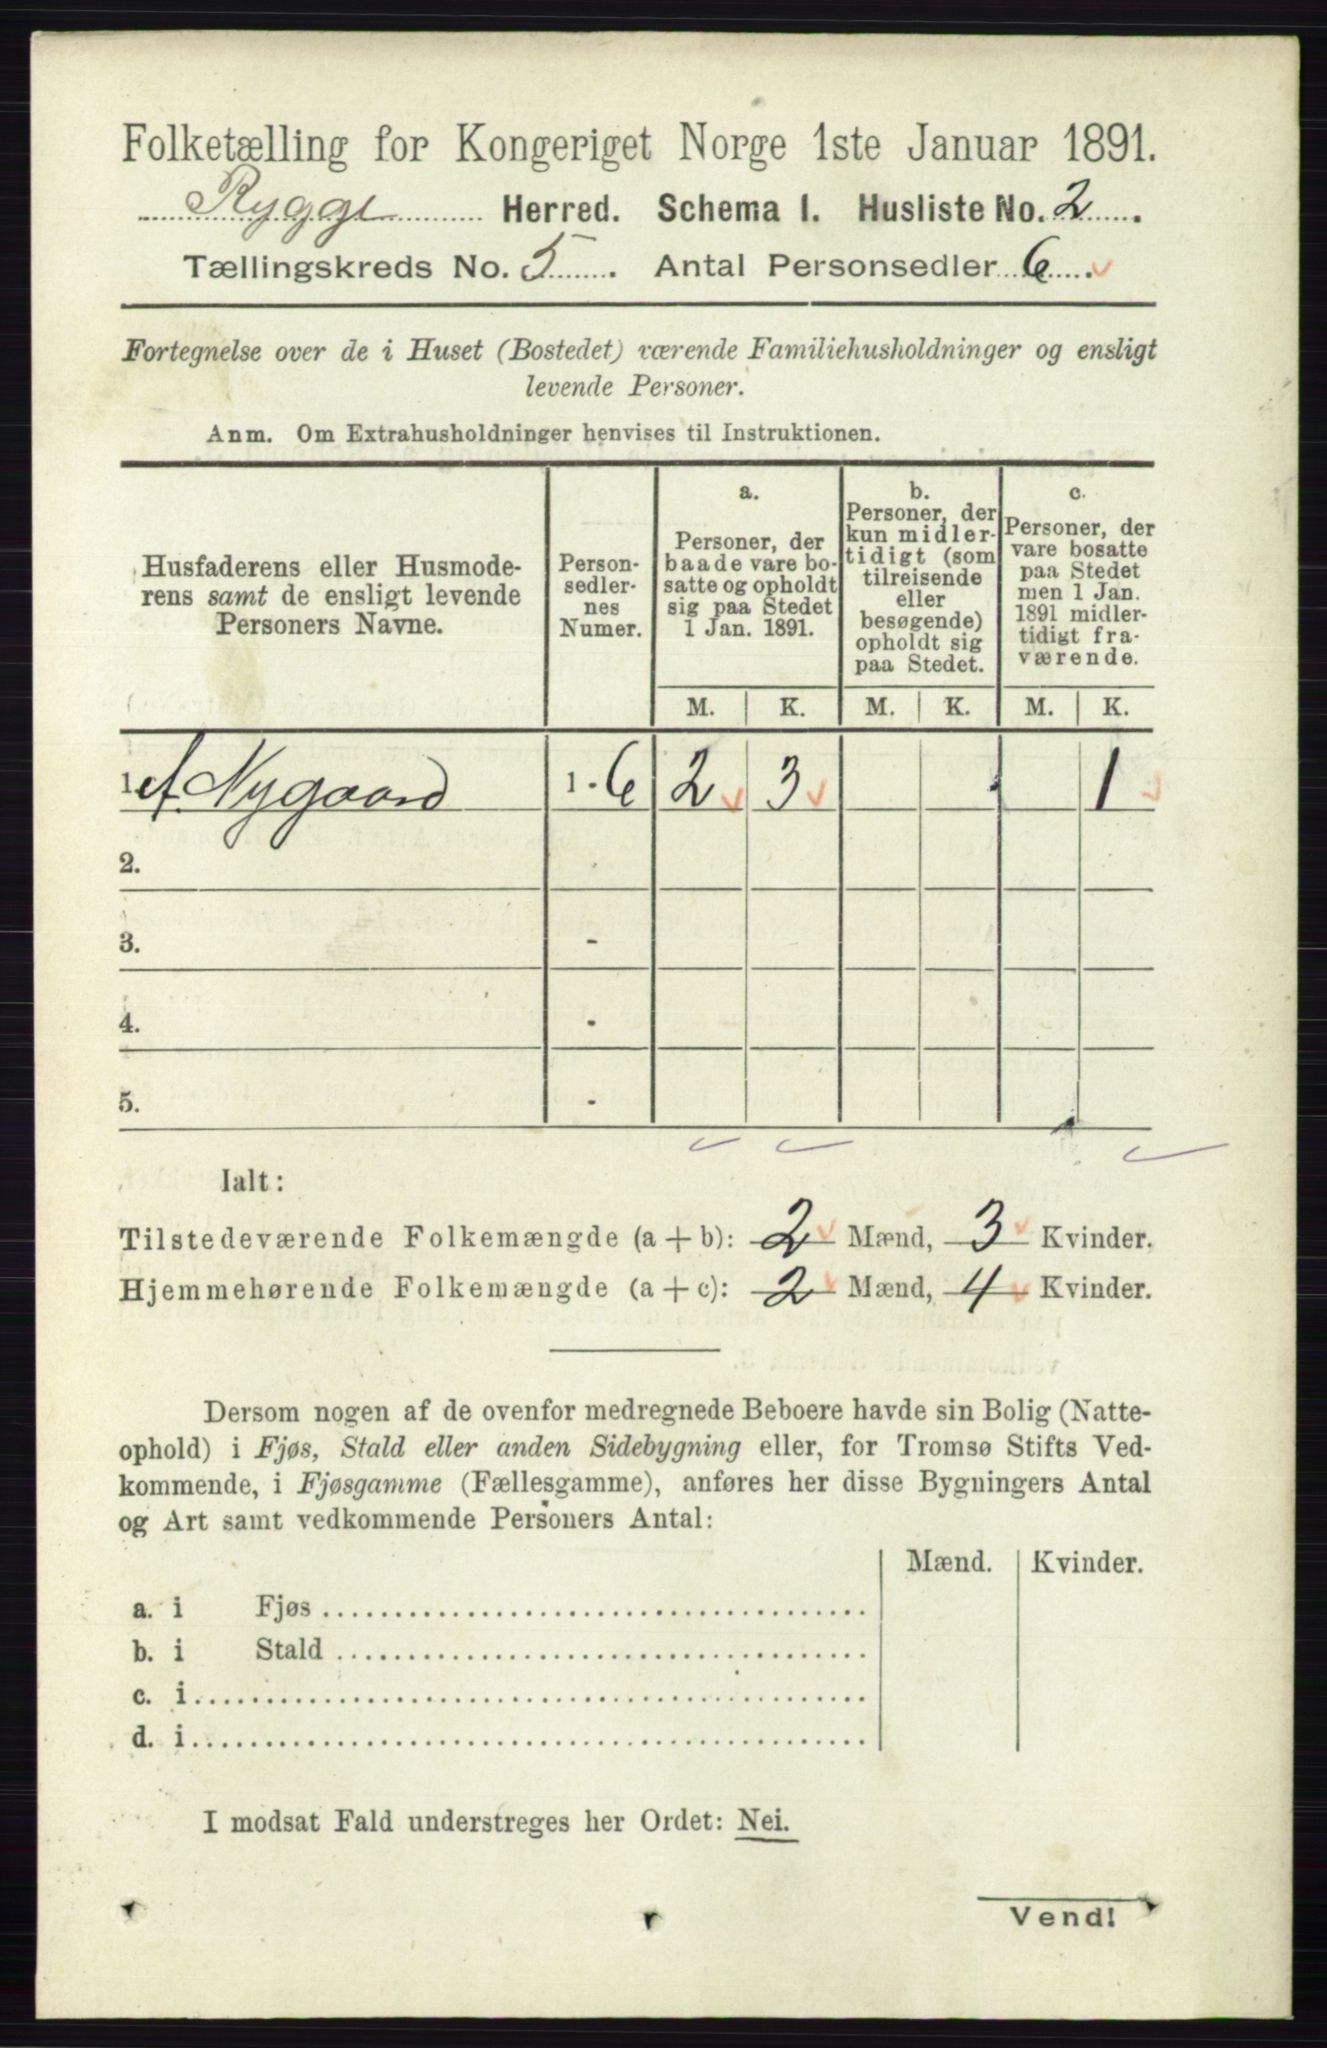 Folketælling for Kongeriget Norge 1ste Januar 1891.
Rygge Herred. Schema I. Husliste No. 2.
Tællingskreds No. 5. Antal Personsedler 6.
Fortegnelse over de i Huset (Bostedet) værende Familiehusholdninger og ensligt
levende Personer.
Anm. Om Extrahusholdninger henvises til Instruktionen.
Husfaderens eller Husmode-
rens samt de ensligt levende
Personers Navne.
Person-
sedler-
nes
Numer.
a.
Personer, der
baade vare bo-
satte og opholdt
sig paa Stedet
1 Jan. 1891.
b.
Personer, der
kun midler-
tidigt (som
tilreisende
eller
besøgende)
opholdt sig
paa Stedet.
c.
Personer, der
vare bosatte
paa Stedet
men 1 Jan.
1891 midler-
tidigt fra-
værende.
M. K. M. K. M. K.
1. A. Nygaard 1 - 6 2 3 1
2.
3. -
4. -
5. -
Ialt:
Tilstedeværende Folkemængde (a + b): 2 Mænd, 3 Kvinder.
Hjemmehørende Folkemængde (a + c): 2 Mænd, 4 Kvinder.
Dersom nogen af de ovenfor medregnede Beboere havde sin Bolig (Natte-
ophold) i Fjøs, Stald eller anden Sidebygning eller, for Tromsø Stifts Ved-
kommende, i Fjøsgamme (Fællesgamme), anføres her disse Bygningers Antal
og Art samt vedkommende Personers Antal:
Mænd. Kvinder.
a. i Fjøs
b. i Stald
c. i
d. i
I modsat Fald understreges her Ordet: Nei.
Vend!